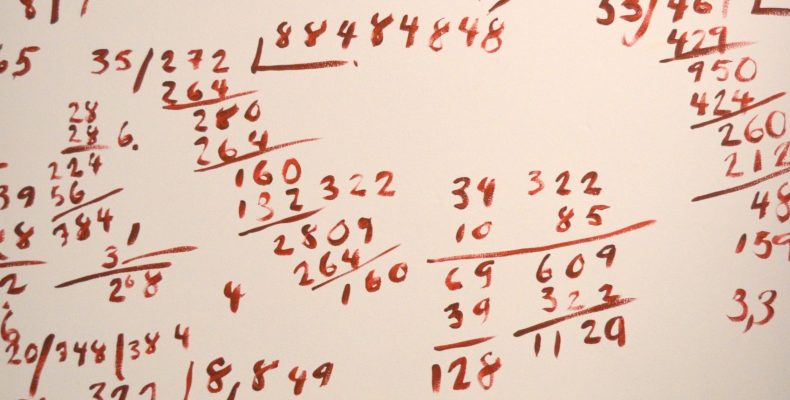 35/272 884 84 848
264
280
264
160
132 322
2809
264
160
28
28 6.
224
56
384
1
3
208
4
34 322
10 85
69 609
39 323
128 1129
429
950
424
260
212
48
159
3,3
65
39
20/348/384
8,849